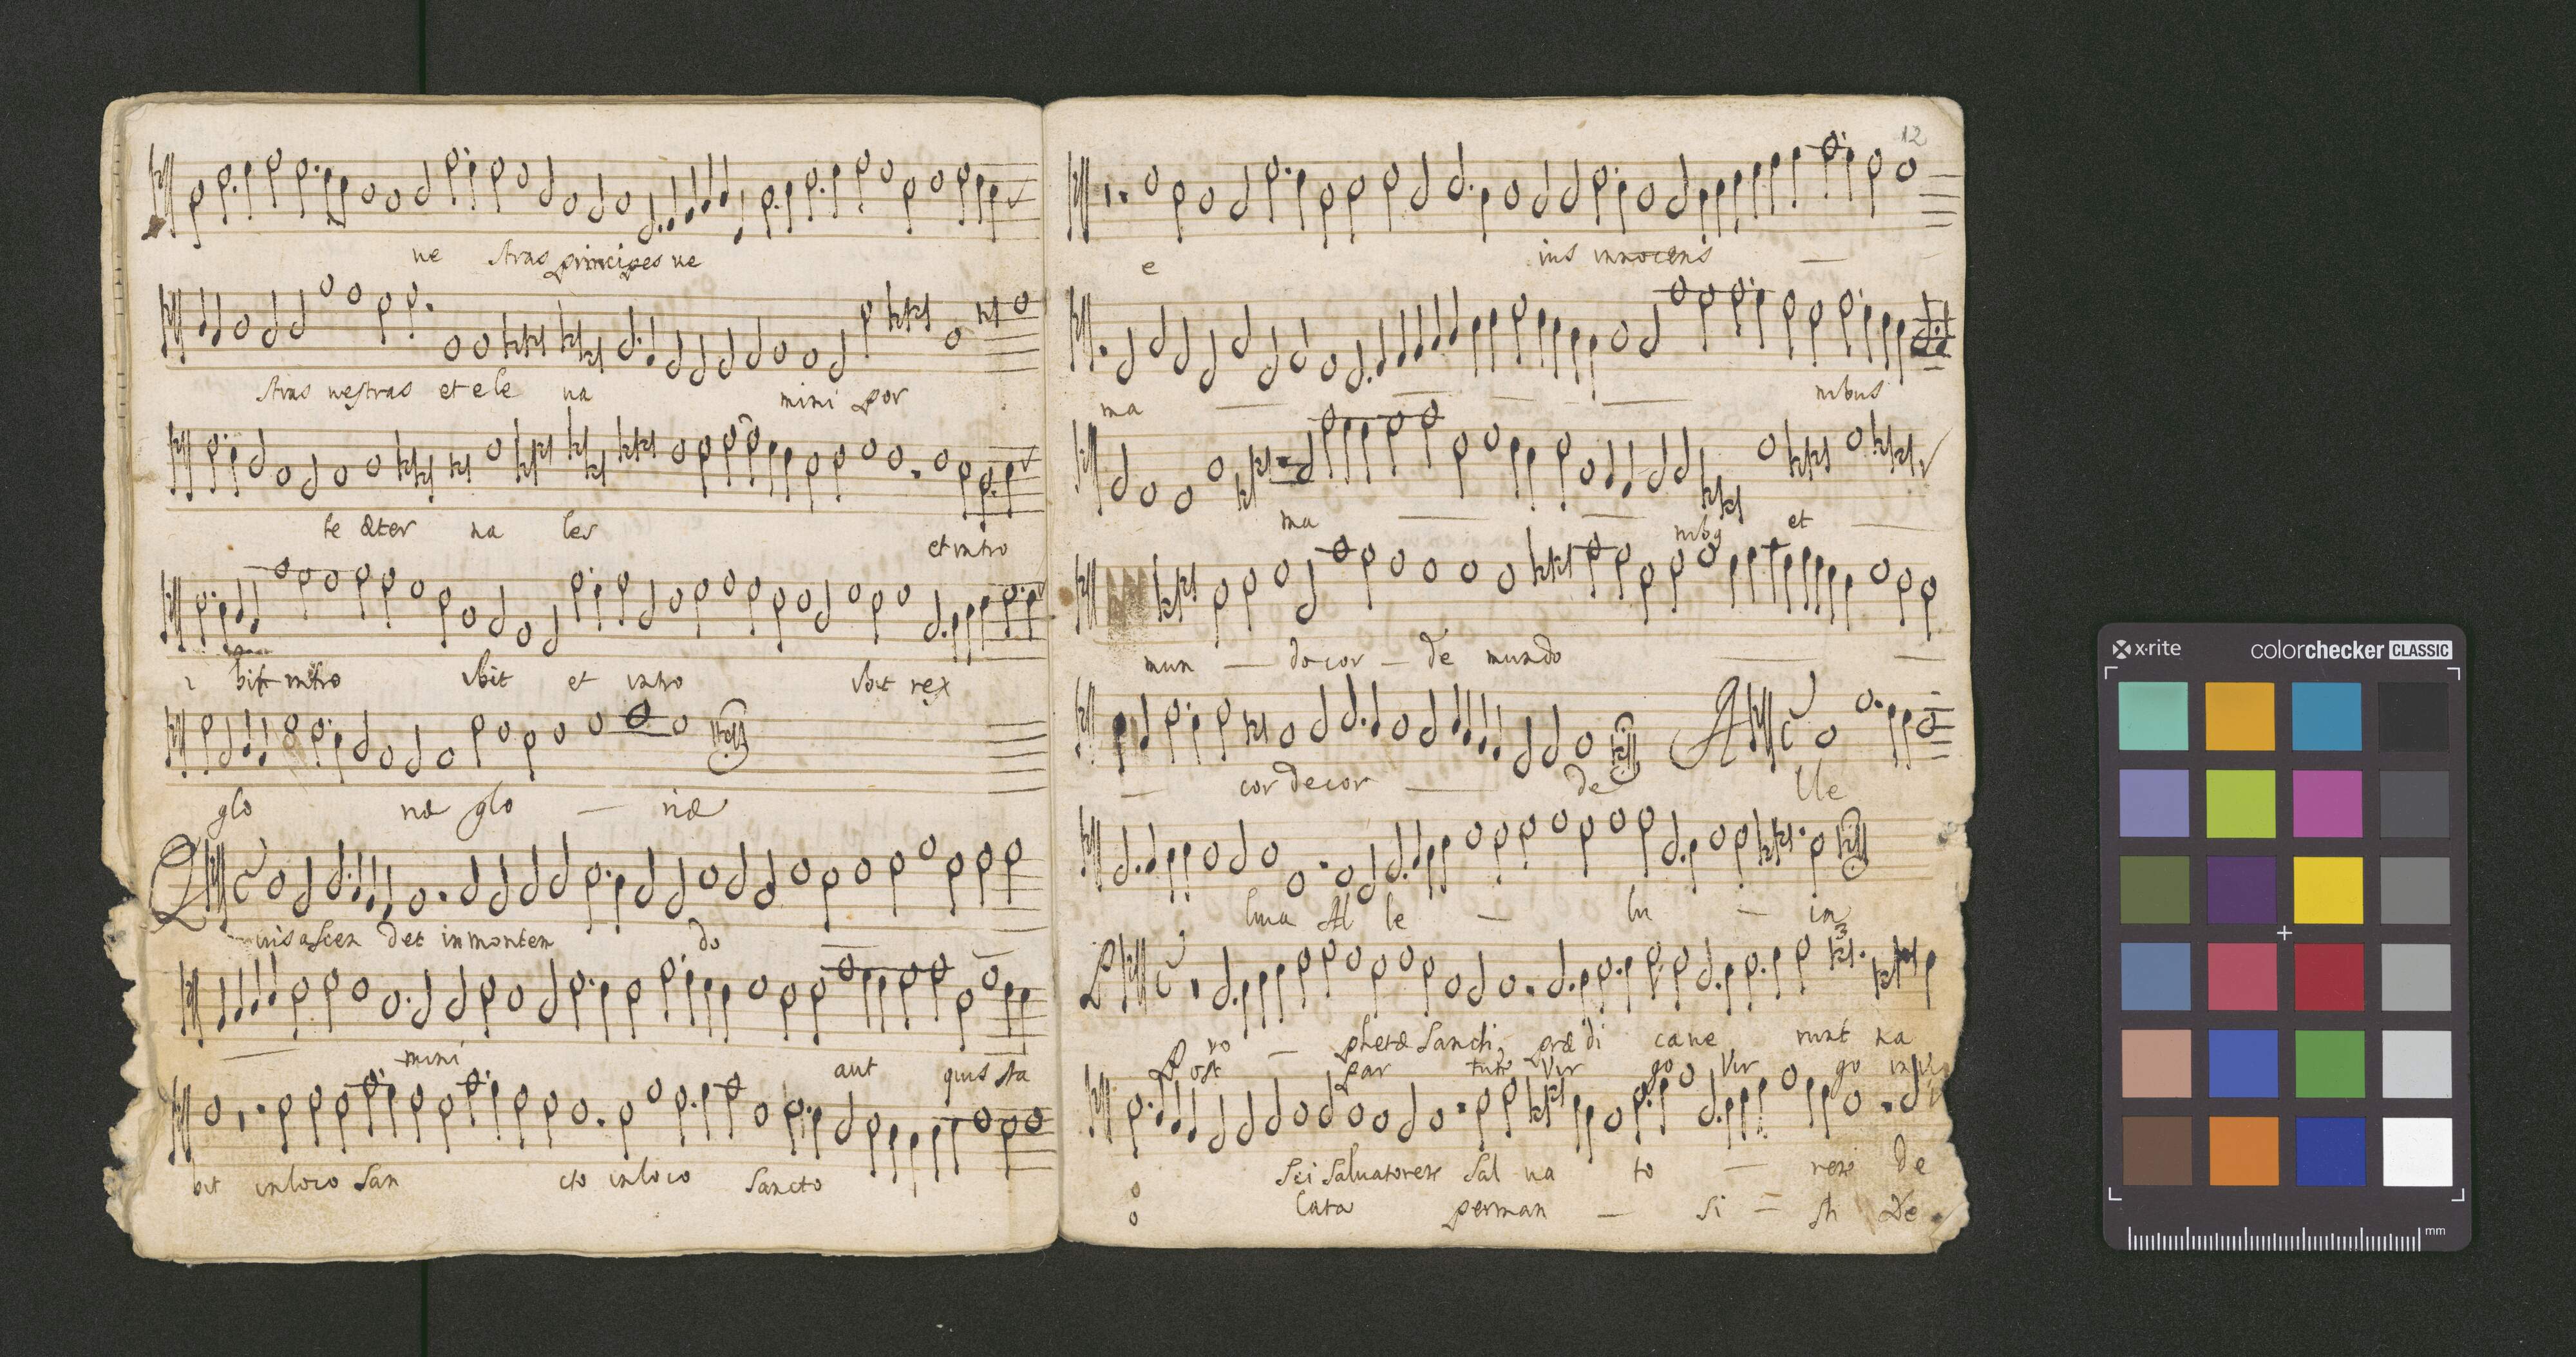 ve stras principes ve
stras vestras et ele va mini por
te æter na les et intro
i bit intro ibit et intro ibit rex
glo riæ glo — riæ
Q uis ascen det in montem do
— mini aut quis sta
bit in loco San cto in loco Sancto
12
e ius innocens —
ma — — — — nibus
ma — — nibus et —
mun — do cor — de mundo — —
— cor de cor — de A lle
luia Al le — lu — ia
3
P ro — phetæ Sancti prædi cave runt na
Post par tum Vir go Vir go invi
sci Salvatorem Sal va to — rem de
lata perman — si — sti De
x·rite colorchecker CLASSIC
mm